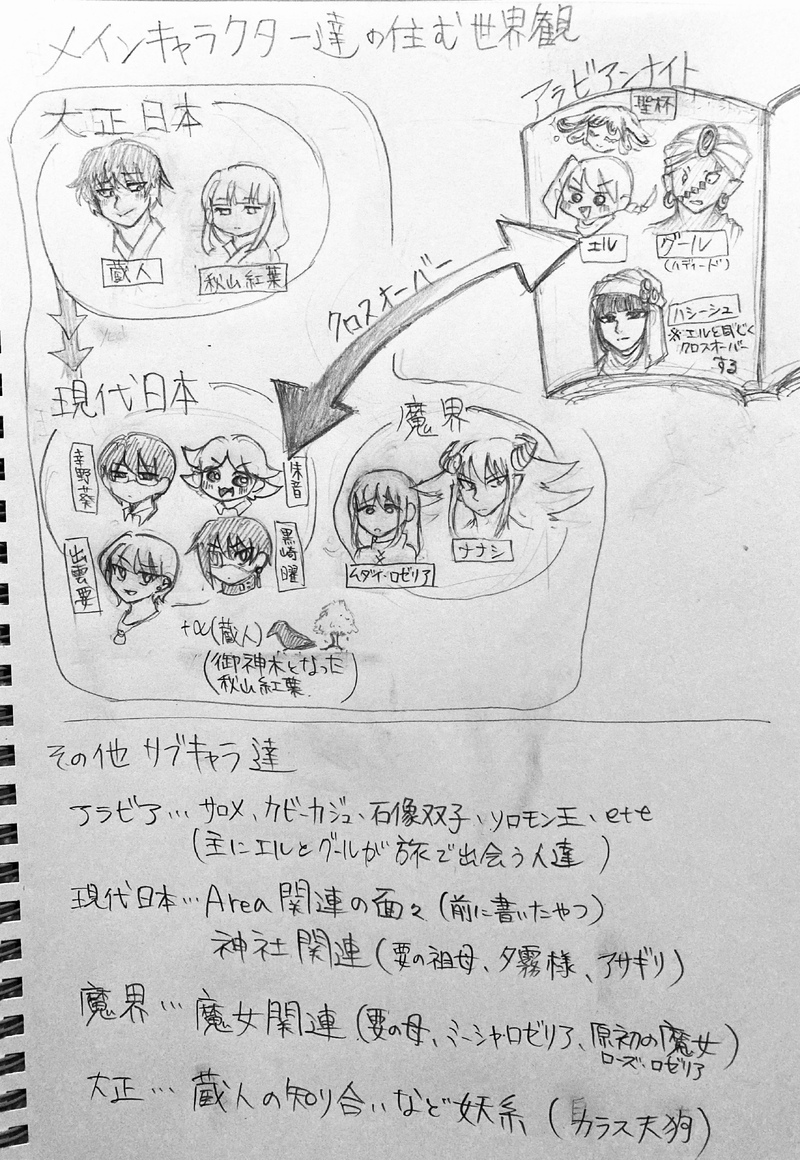 メインキャラクター達の住む世界観
アラビアンナイト
聖杯
エル
グール
(ハディード)
ハシーシュ
※エルを通じて
クロスオーバー
する
大正日本
蔵人
秋山紅葉
クロスオーバー
現代日本
幸野葵
朱音
出雲要
黒崎曜
+α(蔵人)
(御神木となった
秋山紅葉)
魔界
ムダイ・ロゼリア
ナナシ
その他 サブキャラ達
アラビア…サロメ、カビーカジュ、石像双子、ソロモン王、etc
(主にエルとグールが旅で出会う人達)
現代日本…Area関連の面々(前に書いたやつ)
神社関連(要の祖母、夕霧様、アサギリ)
魔界…魔女関連(要の母、ミーシャロゼリア、原初の魔女)
ローズ・ロゼリア
大正…蔵人の知り合いなど妖系(カラス天狗)